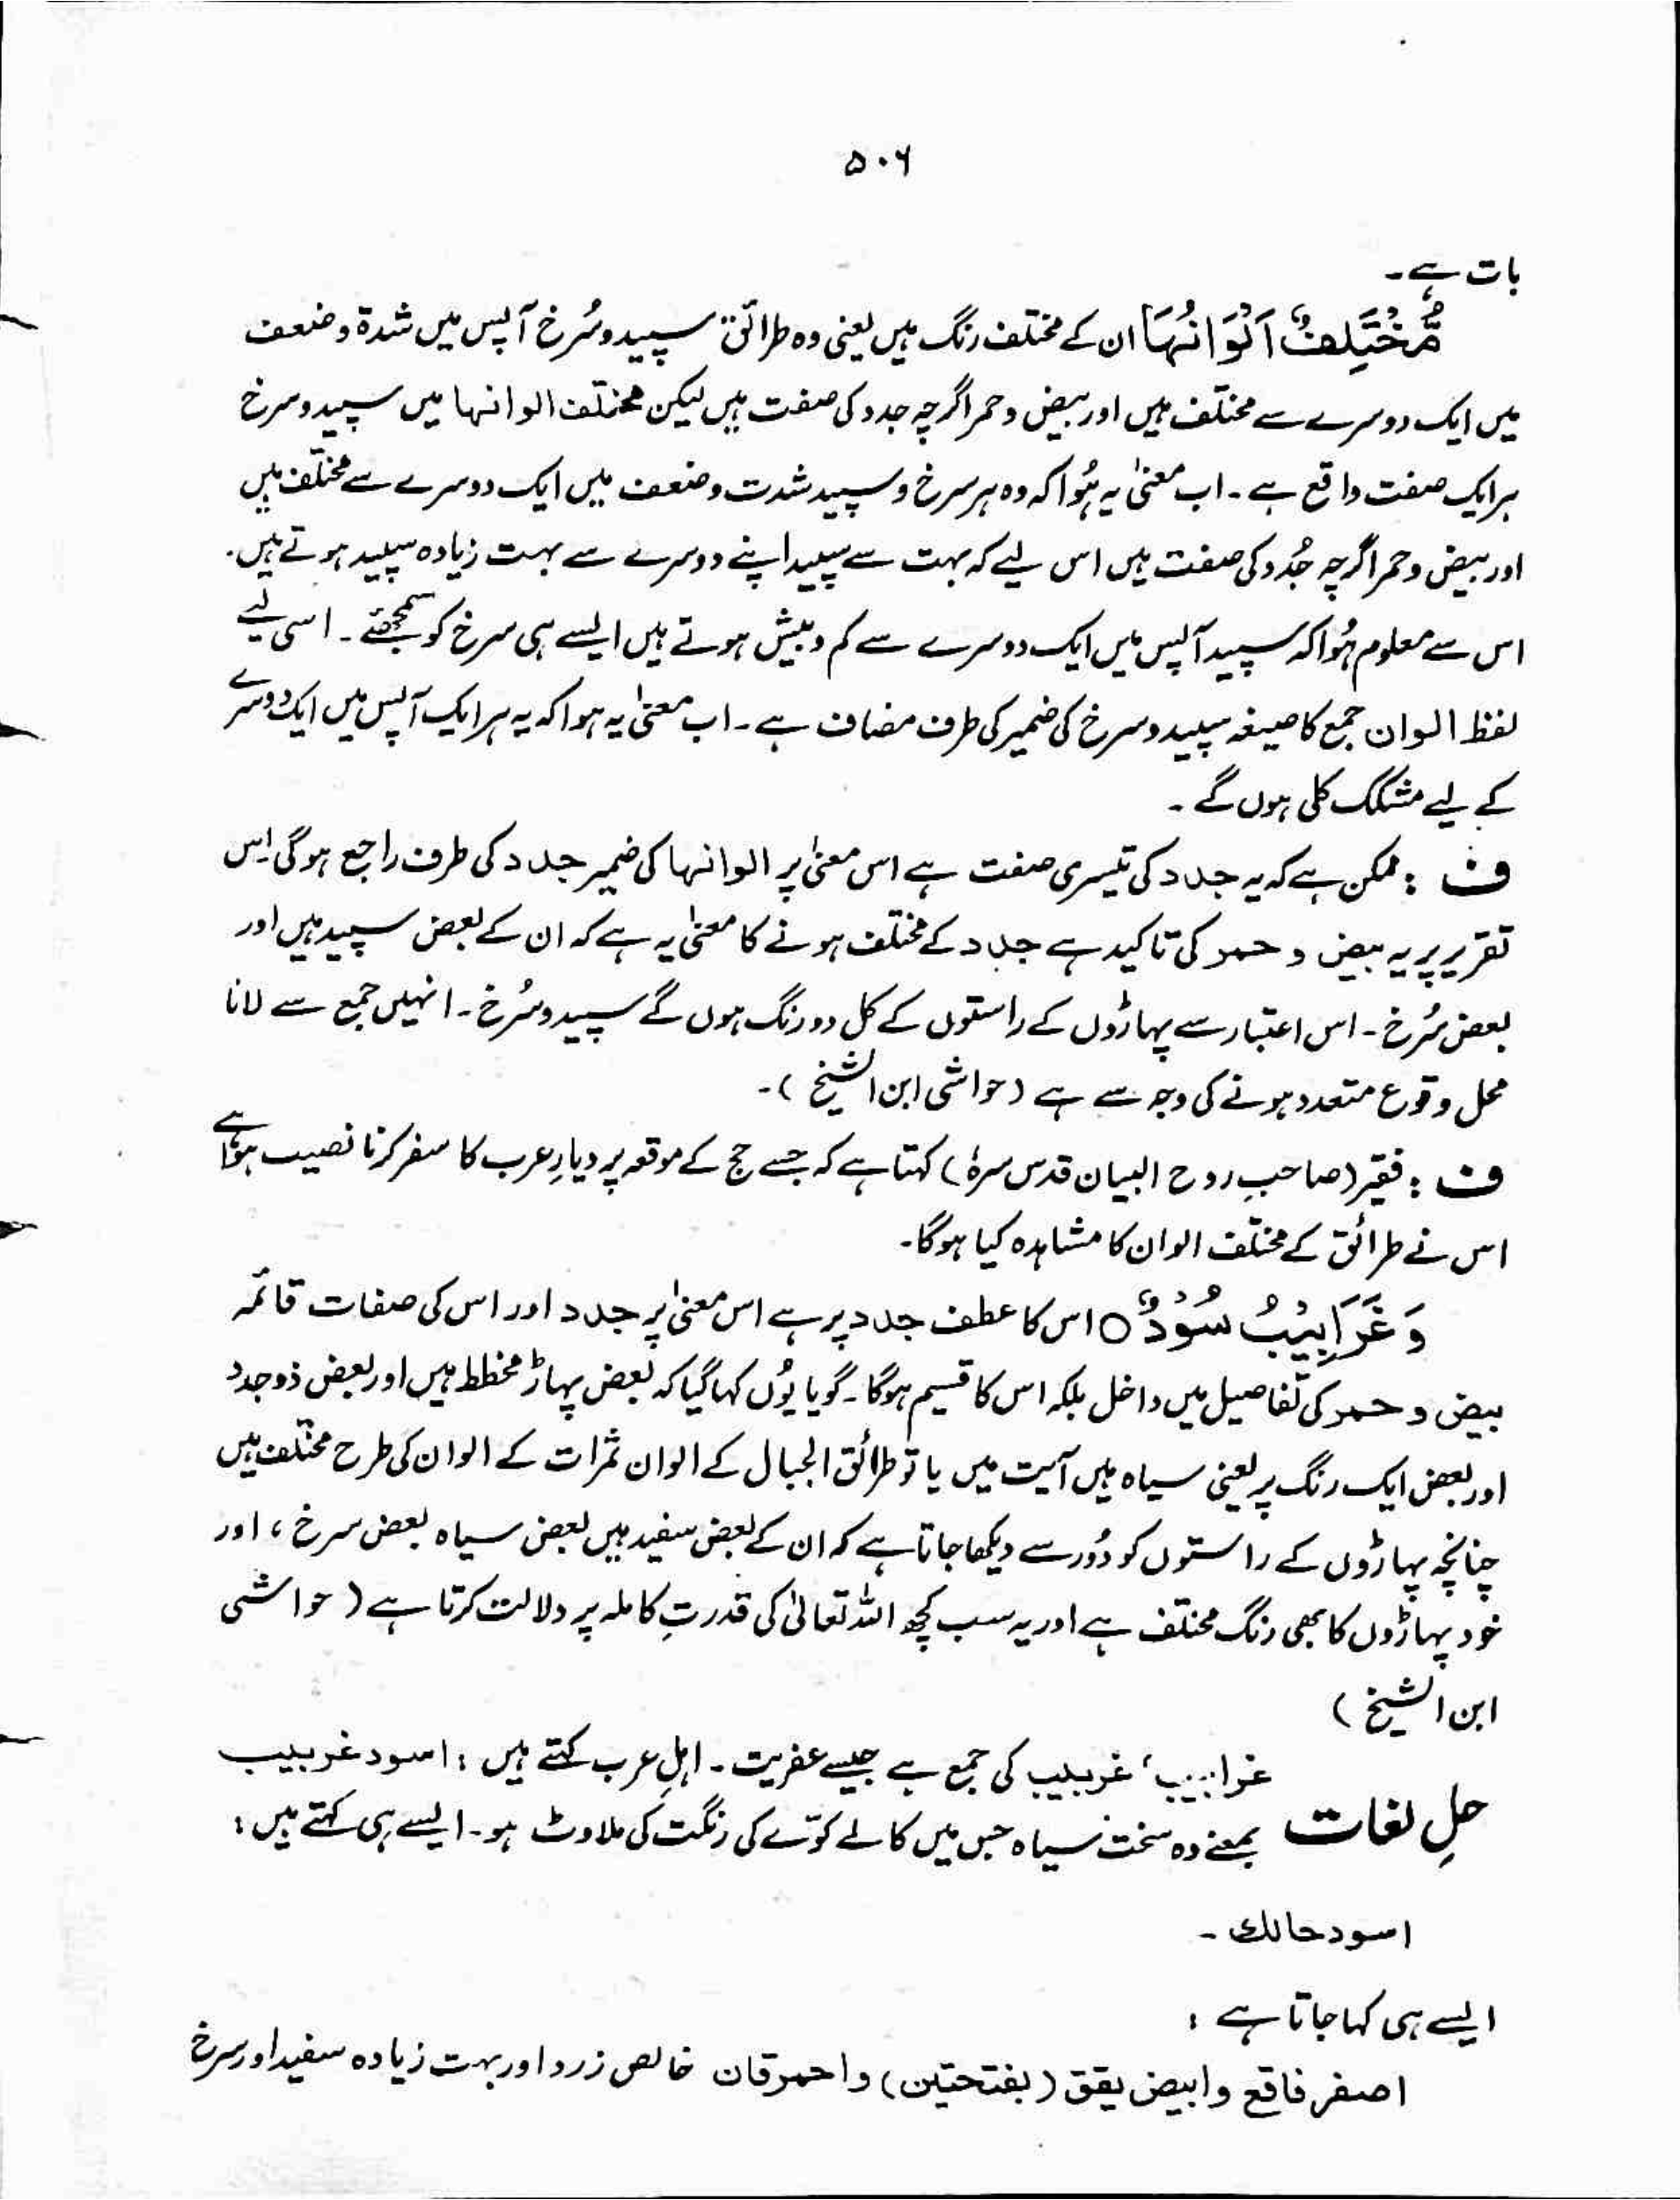 ۵۰۶
بات ہے۔
مُّخْتَلِفٌ اَلْوَانُهَا ان کے مختلف رنگ ہیں یعنی وہ طرائق سپید و سُرخ آپس میں شدۃ و ضعف
میں ایک دوسرے سے مختلف ہیں اور بیض و حمر اگرچہ جدد کی صفت ہیں لیکن مختلف الوانہا میں سپید و سرخ
ہر ایک صفت واقع ہے۔ اب معنیٰ یہ ہُوا کہ وہ ہر سرخ و سپید شدت و ضعف میں ایک دوسرے سے مختلف ہیں
اور بیض و حمر اگرچہ جُدد کی صفت ہیں اس لیے کہ بہت سے سپید اپنے دوسرے سے بہت زیادہ سپید ہوتے ہیں۔
اس سے معلوم ہُوا کہ سپید آپس میں ایک دوسرے سے کم و بیش ہوتے ہیں ایسے ہی سرخ کو سمجھئے۔ اسی لیے
لفظ الوان جمع کا صیغہ سپید و سرخ کی ضمیر کی طرف مضاف ہے۔ اب معنیٰ یہ ہوا کہ یہ ہر ایک آپس میں ایک دوسرے
کے لیے مشکک کلی ہوں گے۔
ف : ممکن ہے کہ یہ جدد کی تیسری صفت ہے اس معنیٰ پر الوانہا کی ضمیر جدد کی طرف راجع ہوگی اِس
تقریر پر یہ بیض و حمر کی تاکید ہے جدد کے مختلف ہونے کا معنیٰ یہ ہے کہ ان کے بعض سپید ہیں اور
بعض سُرخ۔ اس اعتبار سے پہاڑوں کے راستوں کے کل دو رنگ ہوں گے سپید و سُرخ۔ انہیں جمع سے لانا
محل وقوع متعدد ہونے کی وجہ سے ہے (حواشی ابن الشیخ)۔
ف : فقیر (صاحبِ روح البیان قدس سرہٗ) کہتا ہے کہ جسے حج کے موقعہ پر دیارِ عرب کا سفر کرنا نصیب ہُوا ہے
اس نے طرائق کے مختلف الوان کا مشاہدہ کیا ہوگا۔
وَغَرَابِيْبُ سُوْدٌ ○ اس کا عطف جدد پر ہے اس معنیٰ پر جدد اور اس کی صفات قائمہ
بیض و حمر کی تفاصیل میں داخل بلکہ اس کا قسیم ہوگا۔ گویا یُوں کہا گیا کہ بعض پہاڑ مخطط ہیں اور بعض ذو جدد
اور بعض ایک رنگ پر یعنی سیاہ ہیں آیت میں یا تو طرائق الجبال کے الوان ثمرات کے الوان کی طرح مختلف ہیں
چنانچہ پہاڑوں کے راستوں کو دُور سے دیکھا جاتا ہے کہ ان کے بعض سفید ہیں بعض سیاہ بعض سرخ ، اور
خود پہاڑوں کا بھی رنگ مختلف ہے اور یہ سب کچھ اللہ تعالیٰ کی قدرتِ کاملہ پر دلالت کرتا ہے (حواشی
ابن الشیخ)
غرابیب، غربیب کی جمع ہے جیسے عفریت۔ اہلِ عرب کہتے ہیں : اسود غربیب
حلِ لغات بمعنے وہ سخت سیاہ جس میں کالے کوّے کی رنگت کی ملاوٹ ہو۔ ایسے ہی کہتے ہیں :
اسود حالك۔
ایسے ہی کہا جاتا ہے :
اصفر فاقع و ابیض یقق (بفتحتین) و احمر قان خالص زرد اور بہت زیادہ سفید اور سرخ